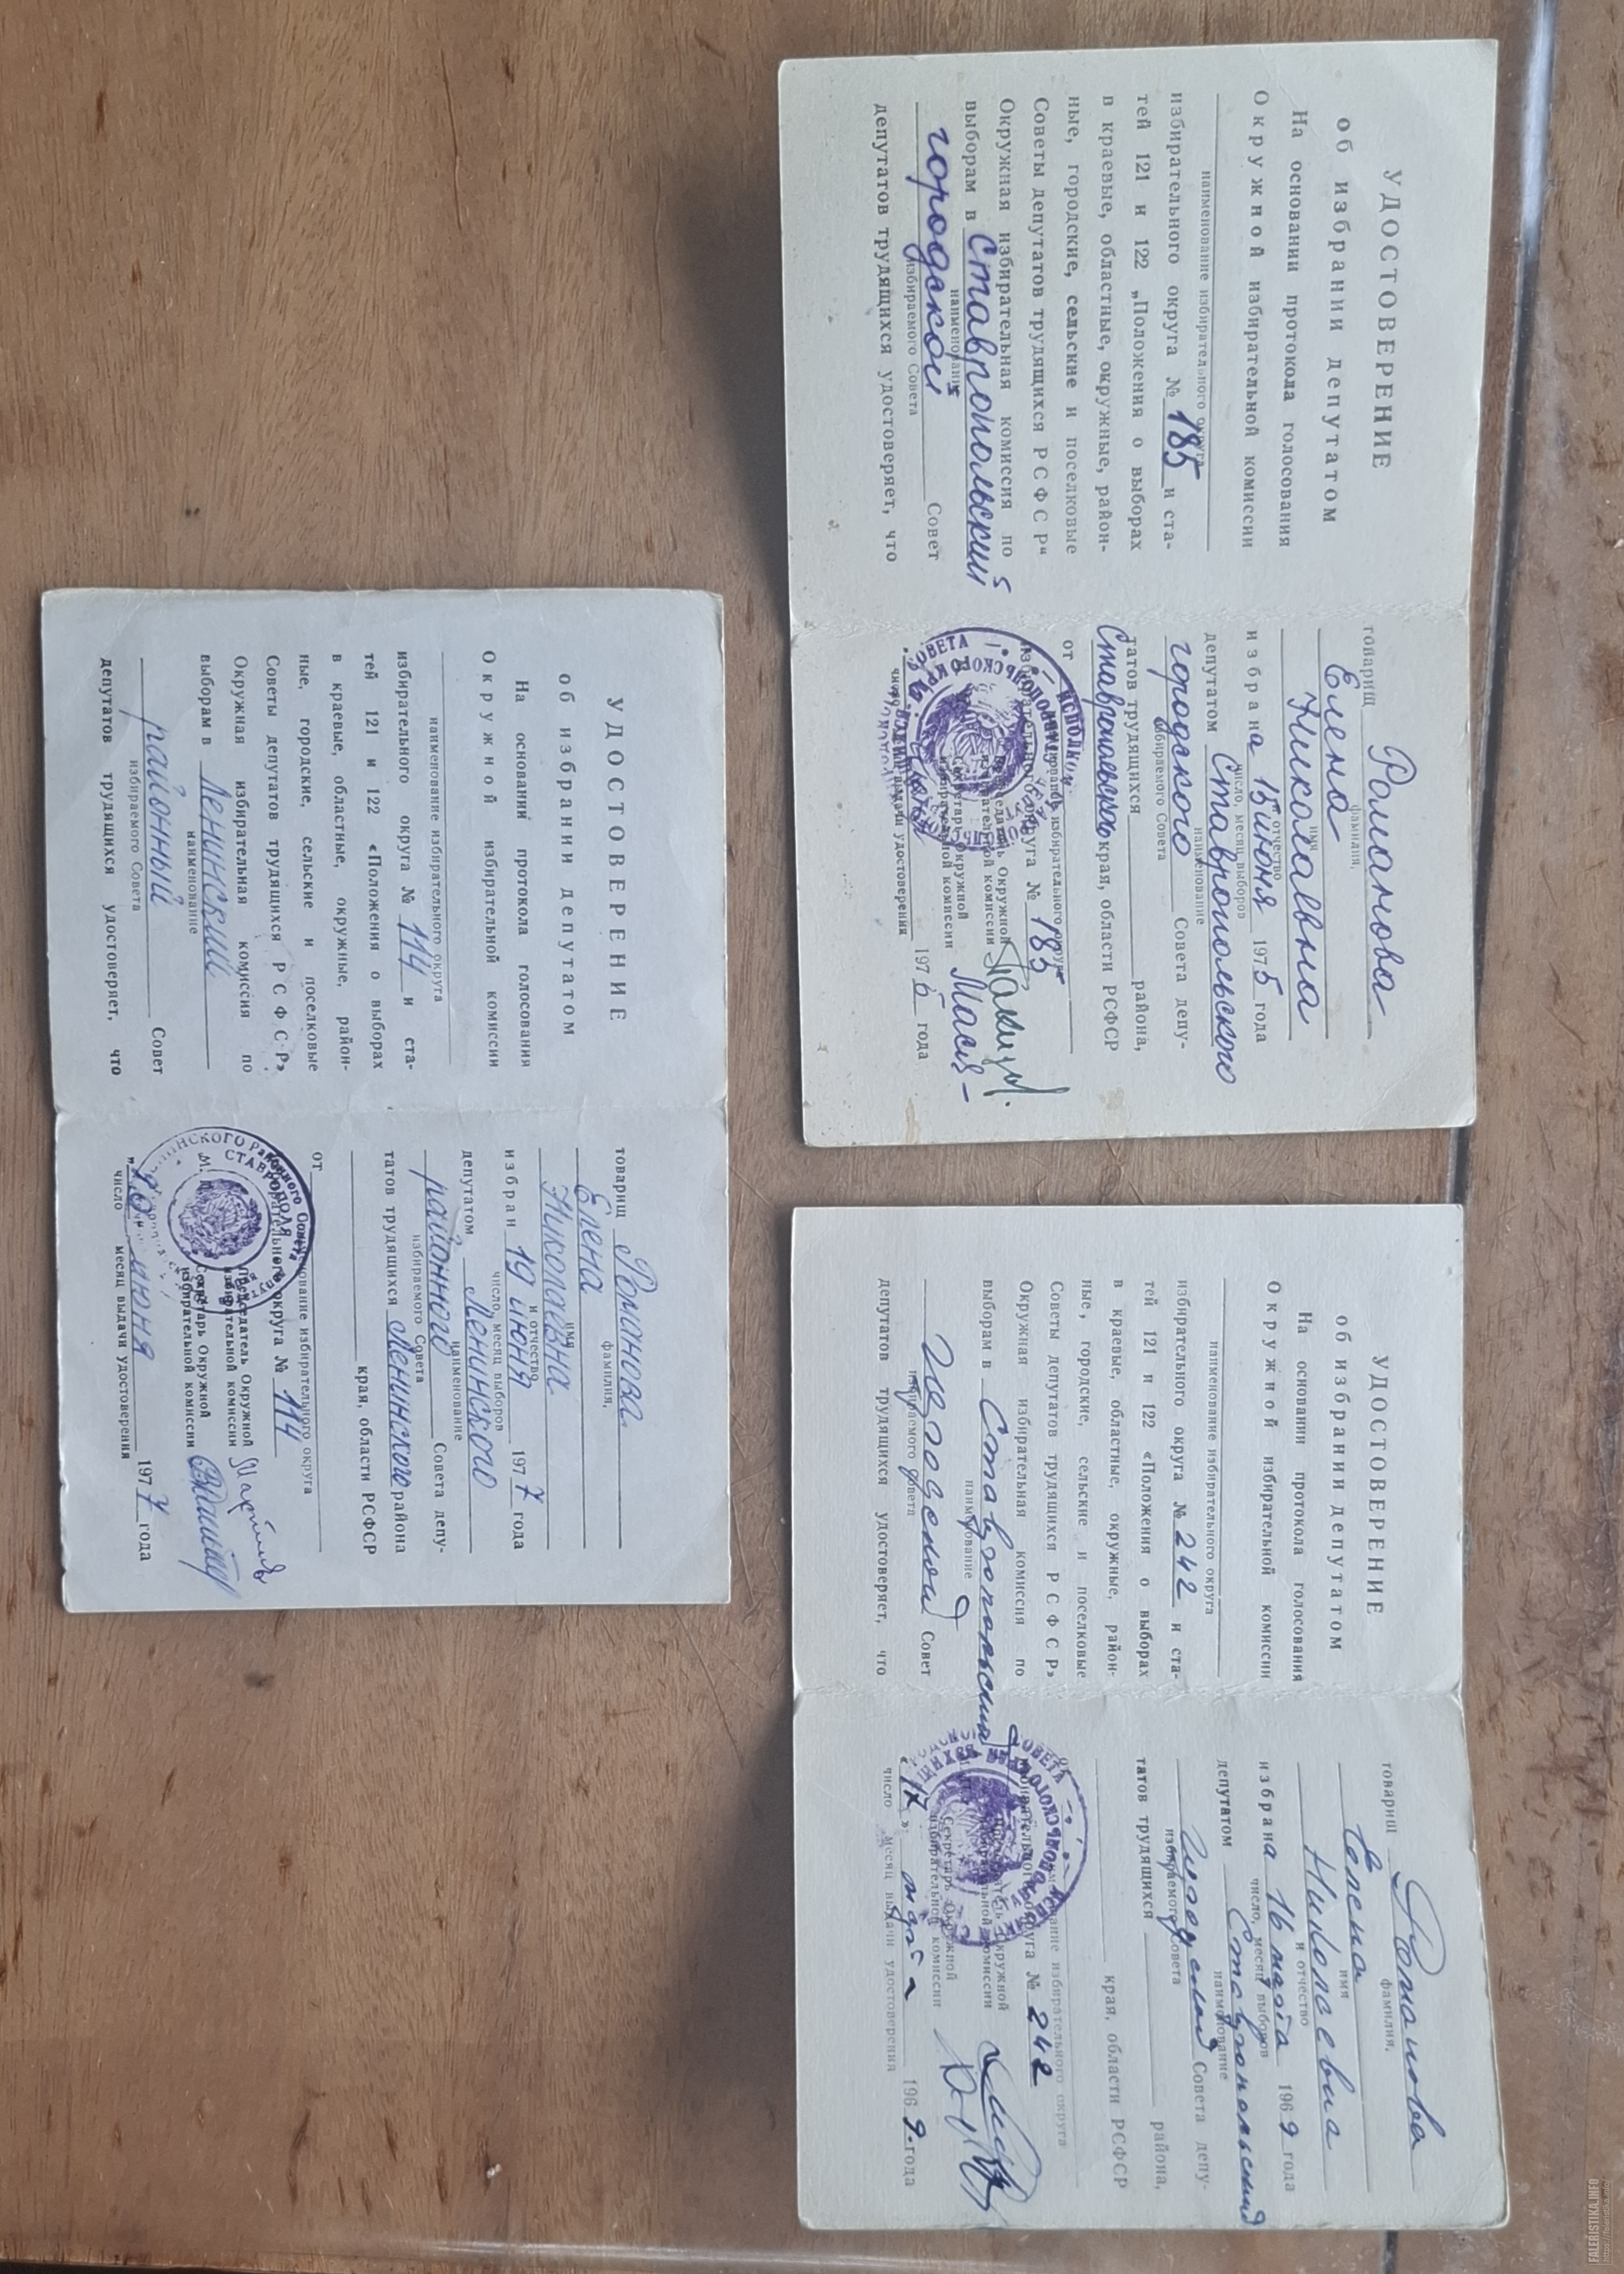 УДОСТОВЕРЕНИЕ
об избрании депутатом
На основании протокола голосования
Окружной избирательной комиссии
наименование избирательного округа
избирательного округа № 185 и ста-
тей 121 и 122 „Положения о выборах
в краевые, областные, окружные, район-
ные, городские, сельские и поселковые
Советы депутатов трудящихся РСФСР“
Окружная избирательная комиссия по
выборам в Ставропольский
наименование
городской Совет
избираемого Совета
депутатов трудящихся удостоверяет, что
товарищ Романова
фамилия,
Елена
имя
Николаевна
отчество
избрана 15 июня 1975 года
число, месяц выборов
депутатом Ставропольского
наименование
городского Совета депу-
избираемого Совета
татов трудящихся района,
Ставропольского края, области РСФСР
от
наименование избирательного округа
избирательного округа № 185
Председатель Окружной
избирательной комиссии
Секретарь Окружной
избирательной комиссии
июня 1975 года
число месяц выдачи удостоверения
УДОСТОВЕРЕНИЕ
об избрании депутатом
На основании протокола голосования
Окружной избирательной комиссии
наименование избирательного округа
избирательного округа № 242 и ста-
тей 121 и 122 «Положения о выборах
в краевые, областные, окружные, район-
ные, городские, сельские и поселковые
Советы депутатов трудящихся РСФСР»
Окружная избирательная комиссия по
выборам в Ставропольский
наименование
городской Совет
избираемого Совета
депутатов трудящихся удостоверяет, что
товарищ Романова
фамилия,
Елена
имя
Николаевна
и отчество
избрана 16 марта 1969 года
число, месяц выборов
депутатом Ставропольский
наименование
городской Совета депу-
избираемого Совета
татов трудящихся района,
края, области РСФСР
от
наименование избирательного округа
избирательного округа № 242
Председатель Окружной
избирательной комиссии
Секретарь Окружной
избирательной комиссии
«17» марта 1969 года
число месяц выдачи удостоверения
УДОСТОВЕРЕНИЕ
об избрании депутатом
На основании протокола голосования
Окружной избирательной комиссии
наименование избирательного округа
избирательного округа № 114 и ста-
тей 121 и 122 «Положения о выборах
в краевые, областные, окружные, район-
ные, городские, сельские и поселковые
Советы депутатов трудящихся РСФСР»
Окружная избирательная комиссия по
выборам в Ленинский
наименование
районный Совет
избираемого Совета
депутатов трудящихся удостоверяет, что
товарищ Романова
фамилия,
Елена
имя
Николаевна
и отчество
избран 19 июня 1977 года
число, месяц выборов
депутатом Ленинского
наименование
районного Совета депу-
избираемого Совета
татов трудящихся Ленинского района
края, области РСФСР
от
наименование избирательного округа
избирательного округа № 114
Председатель Окружной
избирательной комиссии
Секретарь Окружной
избирательной комиссии
„20 июня 1977 года
число месяц выдачи удостоверения
FALERISTIKA.INFO